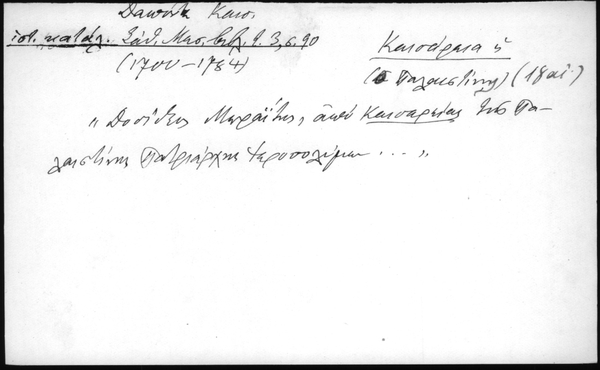 Δαπόντε Κωνσ.
ἱστ. κατάλ. Σάθ. Μεσ. βιβλ. τ. 3, σ. 90
(1700-1784)
Καισάρεια ἡ
(Παλαιστίνης) (18 αἰ.)
"Δοσίθεος ἀπὸ Καισαρείας τῆς Πα-
λαιστίνης Πατριάρχης Ἱεροσολύμων ... "